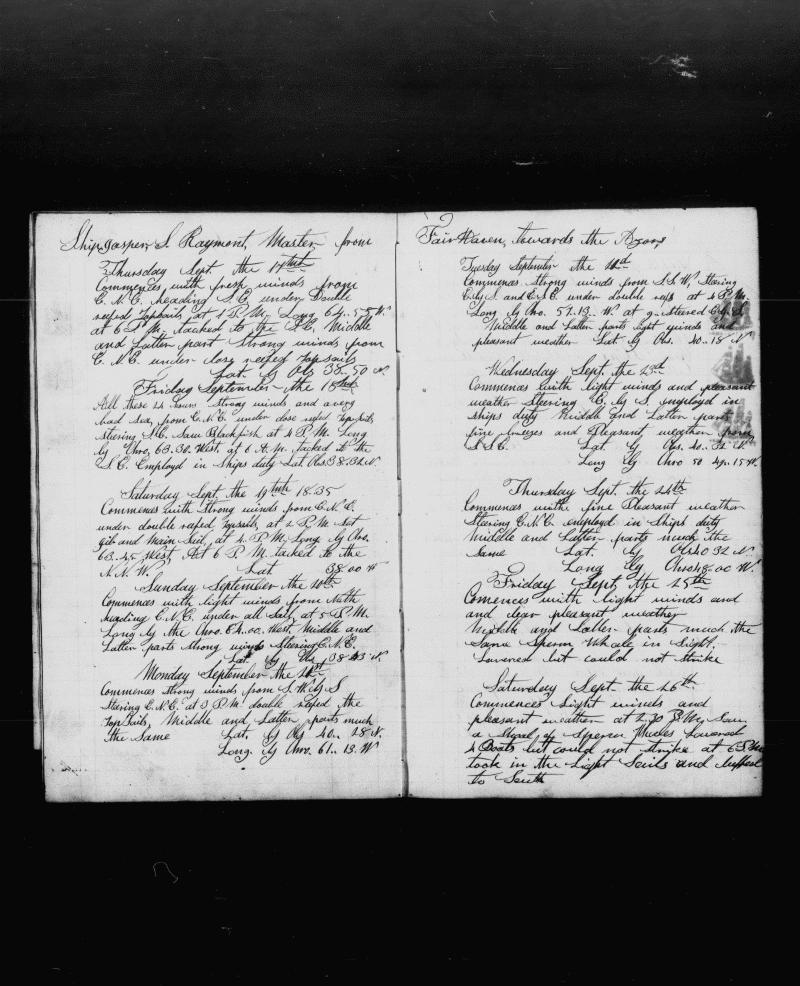 Ship Jasper, S. Raymont, Master, from
Thursday Sept. the 17th
Commences with fresh winds from
E.N.E. heading S.E. under Double
reefed topsails, at 4 P.M. Long 64..55 W.
at 6 P.M. tacked to the Middle
and Latter part Strong winds from
E.N.E. under close reefed topsails
Lat. by Obs 38..50 N.
Friday September the 18th
All these 24 hours strong winds and avery
bad Sea, from E.N.E. under close reefed topsails
steering S.E. Saw Blackfish at 4 P.M. Long
by Chro. 63.30. West, at 6 A.M. tacked to the
S.E. Employd in Ships duty Lat Obs. 38.32 N.
Saturday Sept. the 19th 1835
Commences with Strong winds from E.N.E.
under double reefed topsails, at 2 P.M. Set
gib and Main Sail, at 4 P.M. Long by Chro.
63..45 West At 6 P.M. tacked to the
N.N.W. Lat 38 00 N
Sunday September the 20th
Commences with light winds from North
heading E.N.E. under all Sail, at 5 P.M.
Long by the Chro. 64.00. West. Middle and
Latter parts strong winds Steering E.N.E.
Lat. by Obs 38 43 N.
Monday September the 21st
Commences strong winds from S.W. by S
Steering E.N.E. at 3 P.M. double reefed the
topsails, Middle and Latter parts much
the Same Lat. by Obs 40.. 28 N.
Long. by Chro. 61.. 13. W
Fair Haven, towards the Azors
Tuesday September the 22d
Commences Strong winds from S.S.W. Steering
E. by S. and E.S.E. under double reefs at 4 P.M.
Long by Chro. 57..13.. W. at 9 steered E. by S.
Middle and Latter parts light winds and
pleasant weather Lat by Obs. 40..18 N
Wednesday Sept. the 23d
Commences with light winds and pleasant
weather Steering E. by S. employed in
ships duty Middle and Latter part
fine breezes and Pleasant weather from
S.S.E. Lat. by Obs. 40..32 N.
Long by Chro 50 15 W.
Thursday Sept. the 24th
Commences with fine Pleasant weather
Steering E.N.E. employd in Ships duty
Middle and Latter parts much the
Same Lat. by Obs 40 32 N.
Long by Chro 48..00 W.
Friday Sept. the 25th
Comences with light winds and
and clear pleasant weather
Middle and Latter parts much the
Same Sperm Whale in Sight.
Lowered but could not strike
Saturday Sept. the 26th
Commences Light winds and
pleasant weather at 2.30 P.M. Saw
a Shoal of Sperm Whales Lowered
4 Boats but could not strike at 6 P.M.
took in the Light Sails and luffed
to South